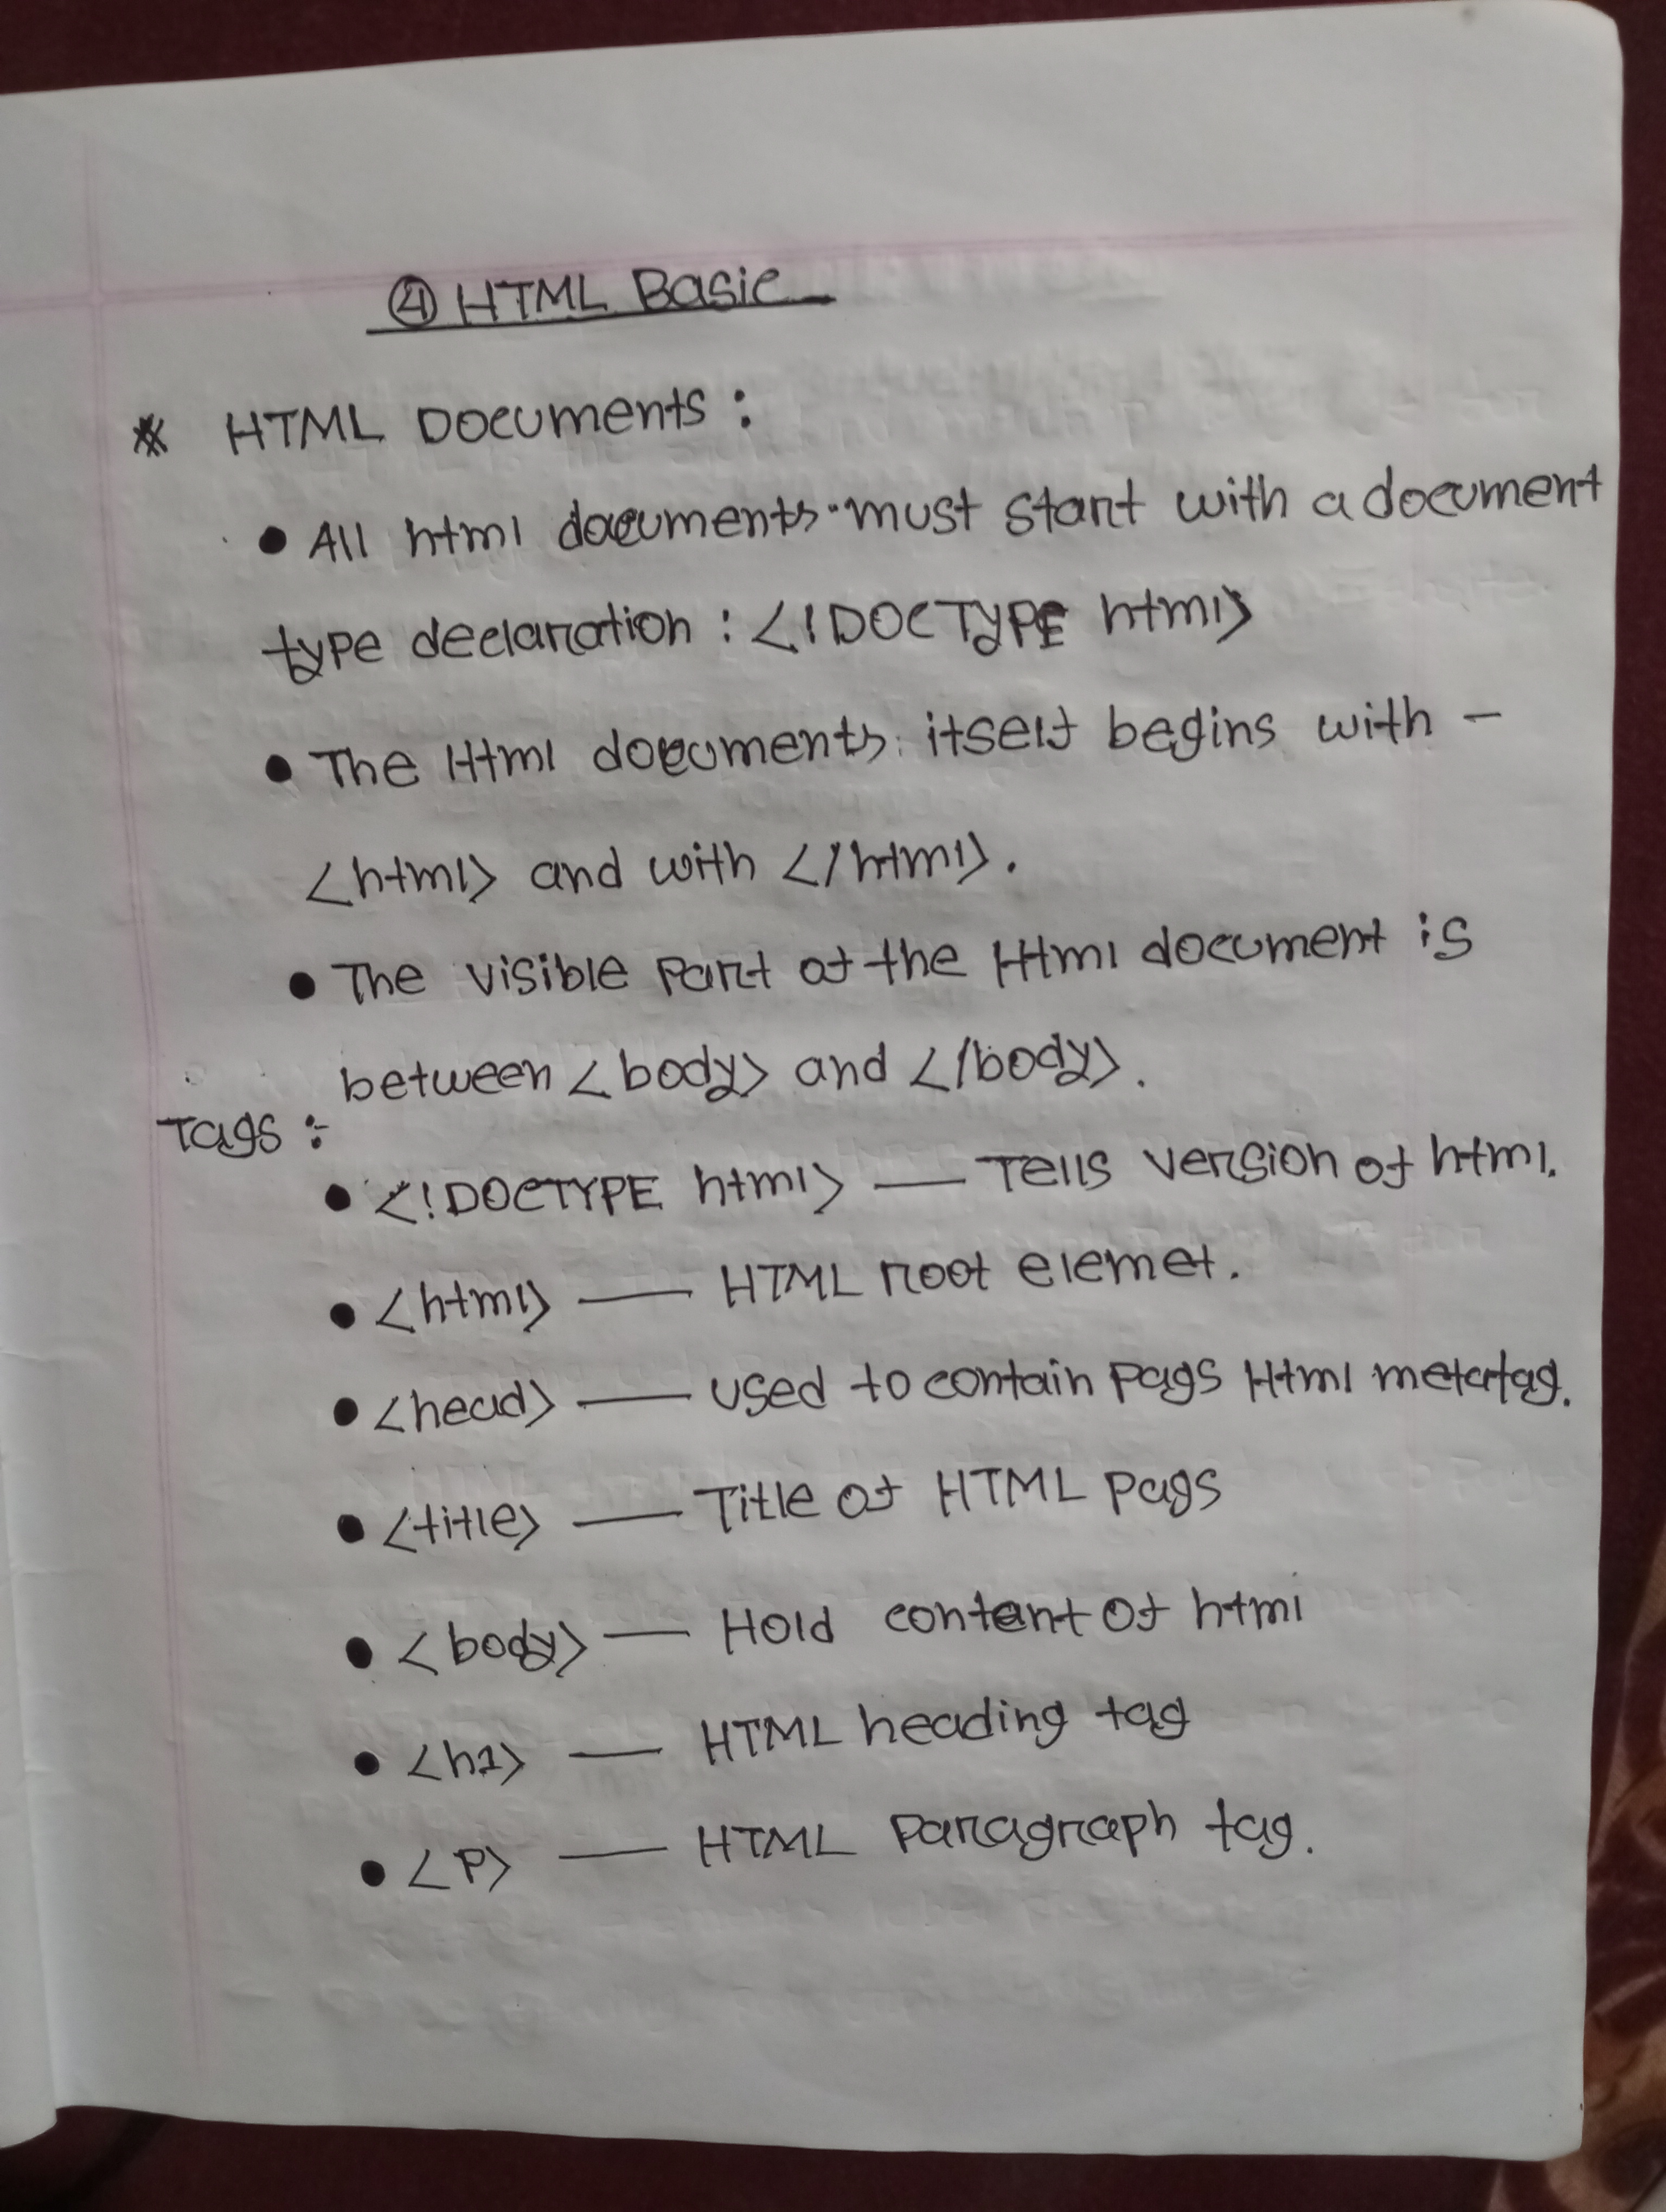 ④ HTML Basic
* HTML Documents :
• All html documents must start with a document
type declaration : <!DOCTYPE html>
• The Html documents itself begins with –
<html> and with </html>.
• The visible part of the Html document is
between <body> and </body>.
Tags :-
• <!DOCTYPE html> — Tells version of html.
• <html> — HTML root elemet.
• <head> — used to contain pags Html metatag.
• <title> — Title of HTML pags
• <body> — Hold content of html
• <h1> — HTML heading tag
• <P> — HTML Paragraph tag.